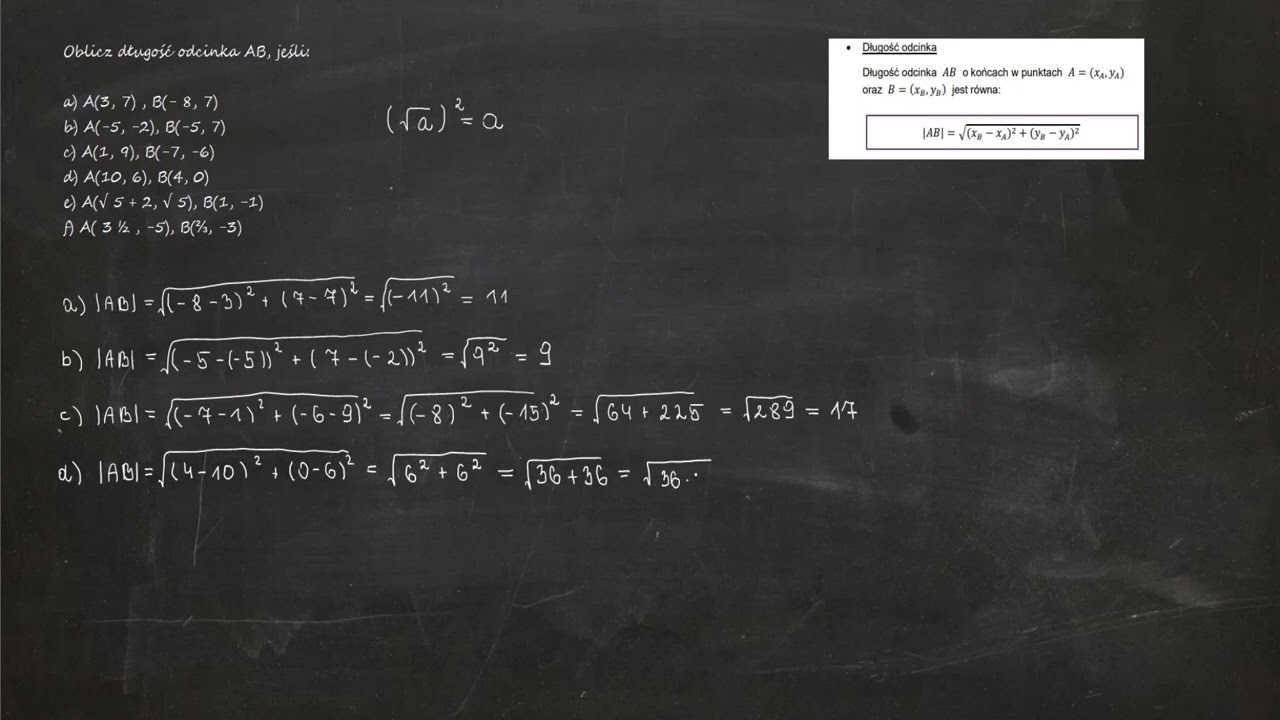 Oblicz długość odcinka AB, jeśli:
a) A(3, 7) , B(- 8, 7)
b) A(-5, -2), B(-5, 7)
c) A(1, 9), B(-7, -6)
d) A(10, 6), B(4, 0)
e) A(√ 5 + 2, √ 5), B(1, -1)
f) A( 3 ½ , -5), B(⅔, -3)
(√a)² = a
• Długość odcinka
Długość odcinka AB o końcach w punktach A = (x_A, y_A)
oraz B = (x_B, y_B) jest równa:
|AB| = √((x_B − x_A)² + (y_B − y_A)²)
a) |AB| = √((-8-3)² + (7-7)²) = √((-11)²) = 11
b) |AB| = √((-5-(-5))² + (7-(-2))²) = √(9²) = 9
c) |AB| = √((-7-1)² + (-6-9)²) = √((-8)² + (-15)²) = √(64+225) = √289 = 17
d) |AB| = √((4-10)² + (0-6)²) = √(6² + 6²) = √(36+36) = √(36·